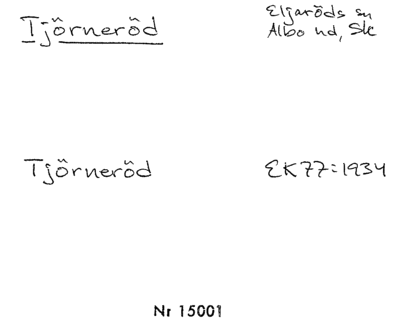 Tjörneröd
Eljaröds sn
Albo hd, Sk
Tjörneröd
EK77=1934
Nr 15001